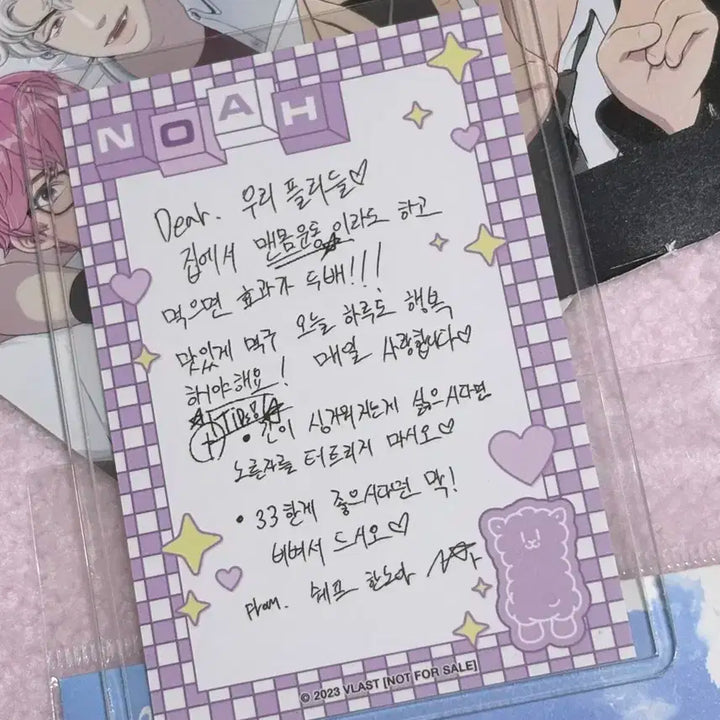 NOAH
Dear. 우리 플리들♡
집에서 맨몸운동이라도 하고
먹으면 효과가 두배!!!
맛있게 먹구 오늘 하루도 행복
하기야해요! 매일 사랑합니다♡
+TIP
• 간이 싱거워지는게 싫으시다면
노른자를 터트리지 마시오♡
• 33한게 좋으시다면 막!
비벼서 드시오♡
From. 쉐프 한노아
© 2023 VLAST [NOT FOR SALE]